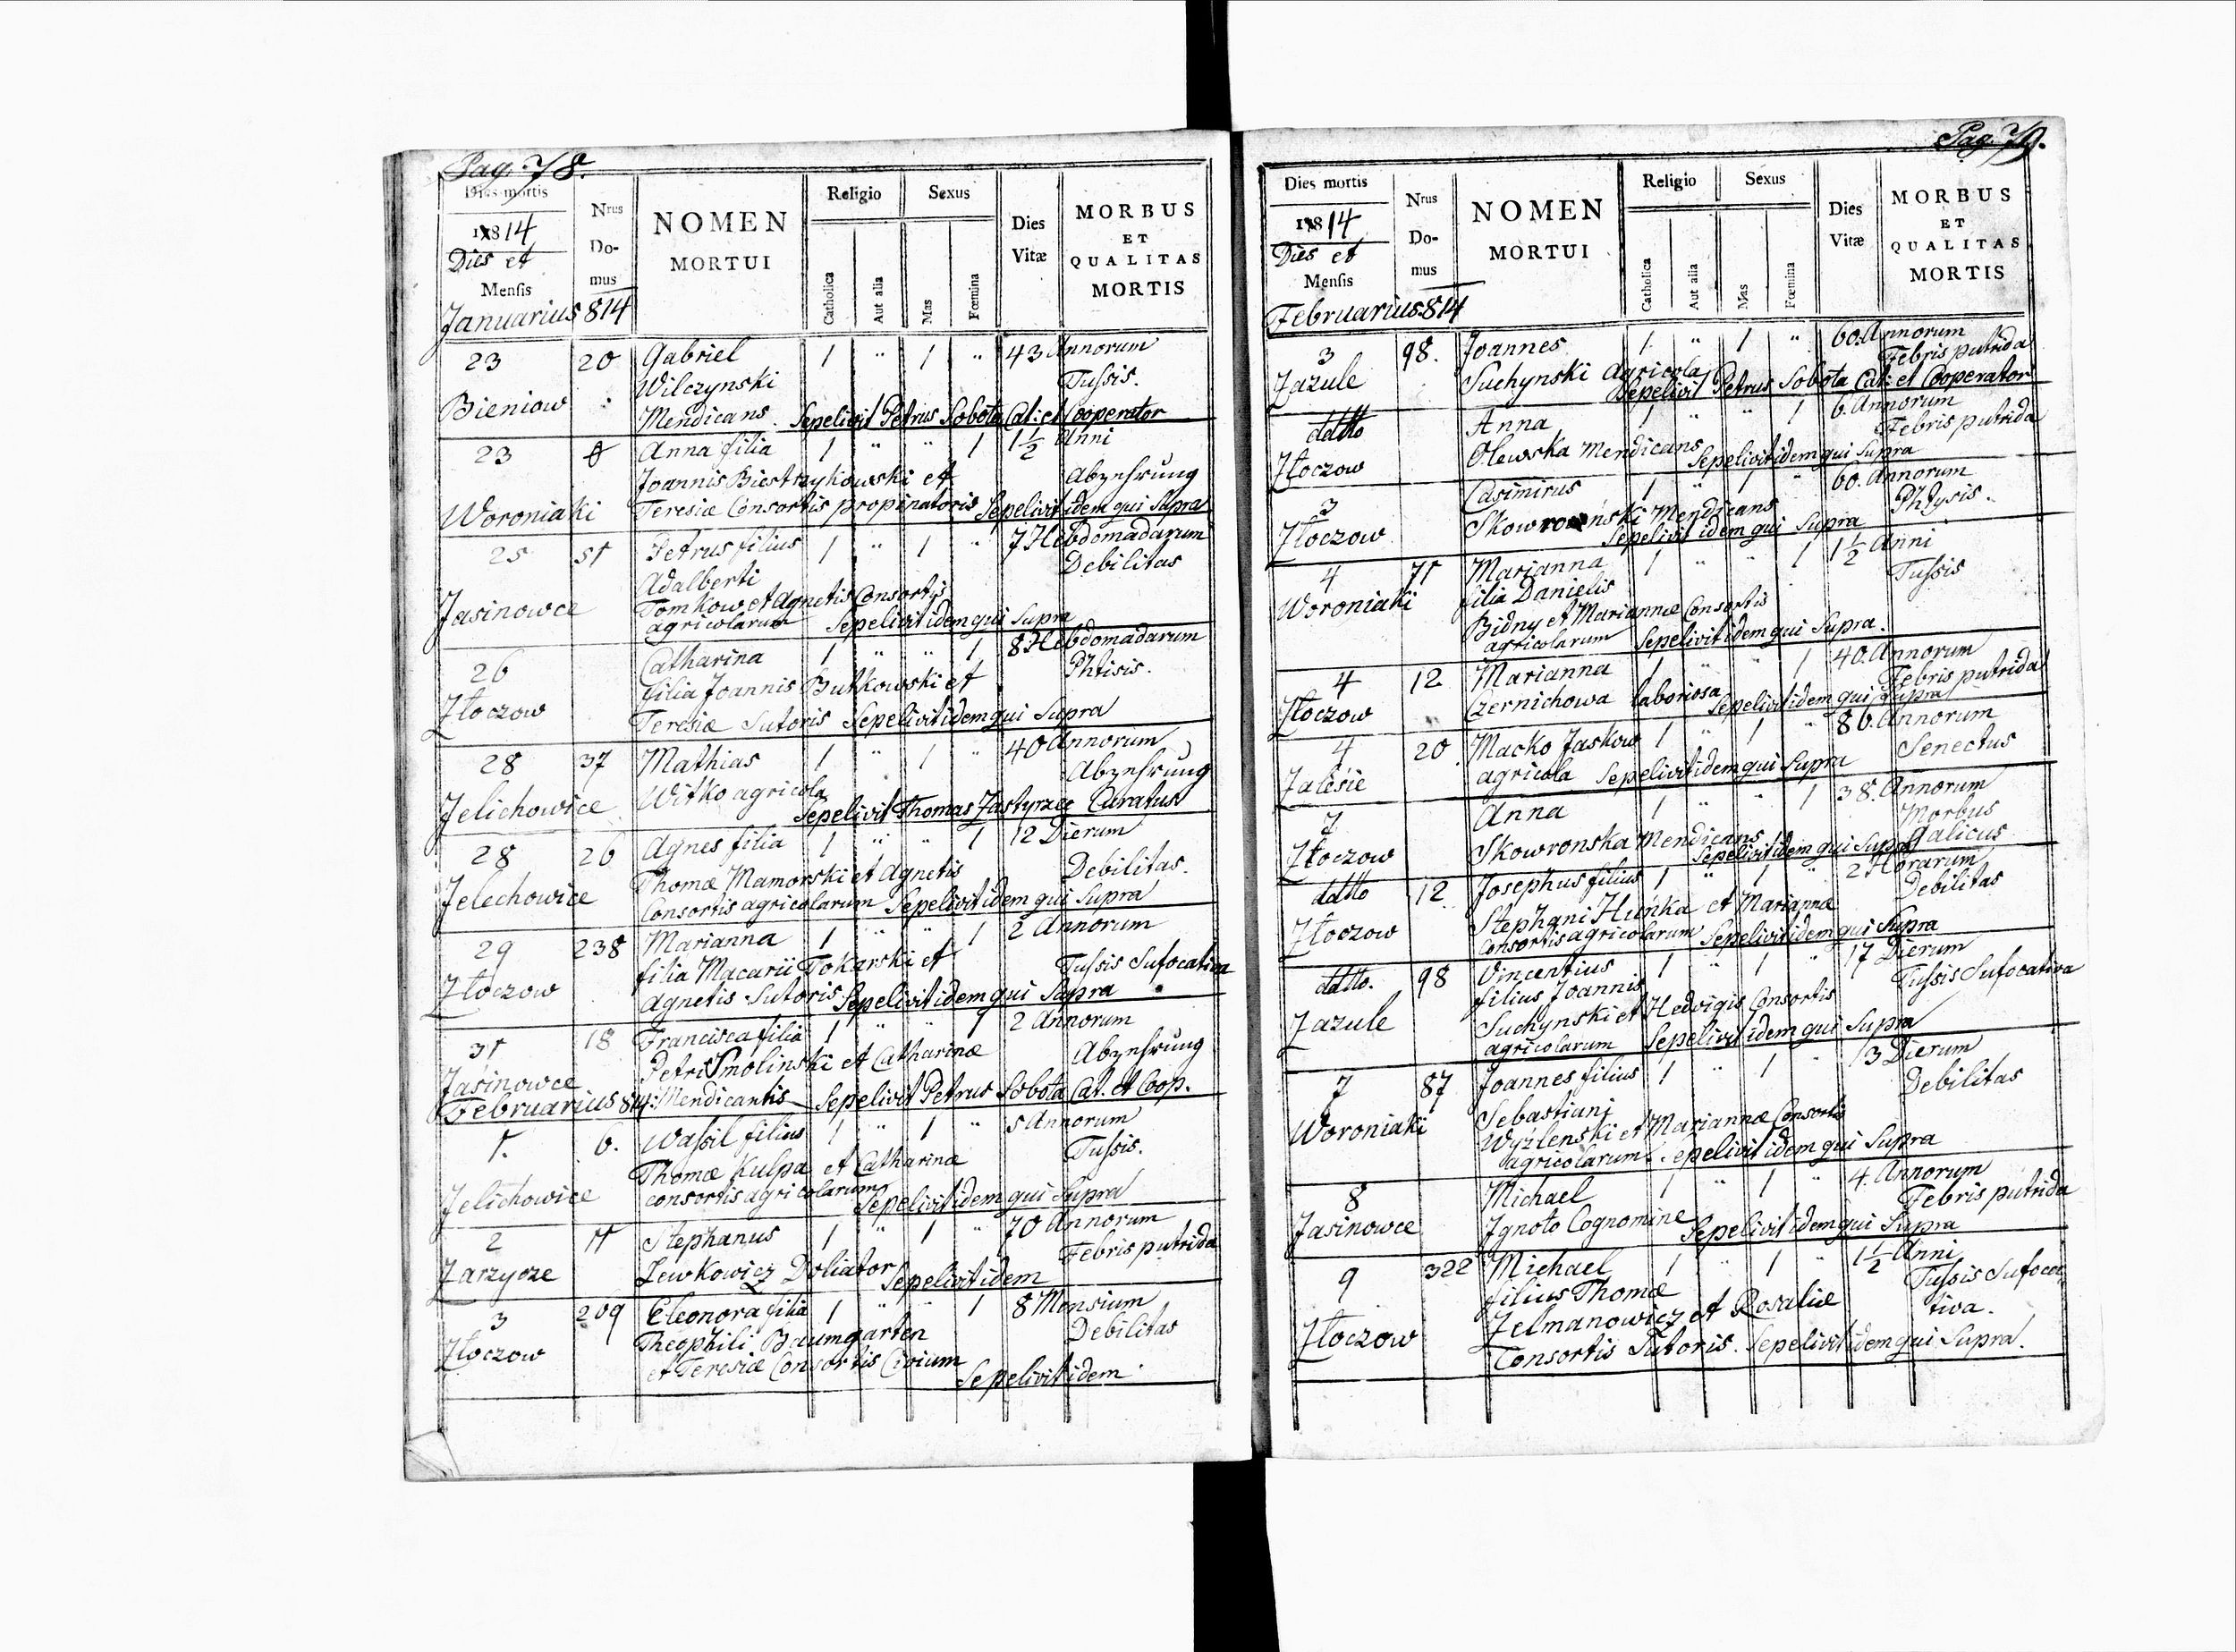 Pag. 78.
Dies mortis
1814
Dies et
Mensis
Januarius 814
Nrus
Do-
mus
NOMEN
MORTUI
Religio
Catholica
Aut alia
Sexus
Mas
Fœmina
Dies
Vitæ
MORBUS
ET
QUALITAS
MORTIS
23 20 Gabriel 1 " 1 " 43 Annorum
Wilczynski Tussis.
Bieniow
Mendicans. Sepelivit Petrus Sobota Cat: et Cooperator
23 8 Anna filia 1 " " 1 1 1/2 Anni
Joannis Biestrzykowski et Abzehrung
Woroniaki Teresiæ Consortis propinatoris Sepelivit idem qui Supra
25 51 Petrus filius 1 " 1 " 7 Hebdomadarum
Adalberti Debilitas
Jasinowce Tomkow et Agnetis Consortis
agricolarum Sepelivit idem qui Supra
26 Catharina 1 " " 1 8 Hebdomadarum
filia Joannis Butkowski et Phtisis.
Złoczow Teresiæ Sutoris Sepelivit idem qui Supra
28 37 Mathias 1 " 1 " 40 Annorum
Witko agricola Abzehrung
Jelichowice Sepelivit Thomas Zastyrzec Curatus
28 26 Agnes filia 1 " " 1 12 Dierum
Thomæ Mamorski et Agnetis Debilitas.
Jelechowice Consortis agricolarum Sepelivit idem qui Supra
29 238 Marianna 1 " " 1 2 Annorum
filia Macarii Tokarski et Tussis Sufocativa
Złoczow Agnetis Sutoris Sepelivit idem qui Supra
31 18 Francisca filia 1 " " 1 2 Annorum
Petri Smolinski et Catharinæ Abzehrung
Jasinowce
Februarius 814: Mendicantis Sepelivit Petrus Sobota Cat. et Coop.
1. 6. Wassil filius 1 " 1 " 5 Annorum
Thomæ Kulpa et Catharinæ Tussis.
Jelichowice consortis agricolarum Sepelivit idem qui Supra
2 11 Stephanus 1 " 1 " 70 Annorum
Zarzycze Lewkowicz Doliator Sepelivit idem Febris putrida
3 209 Eleonora filia 1 " " 1 8 Mensium
Theophili Baumgarten Debilitas
Złoczow et Teresiæ Consortis Civium
Sepelivit idem
Pag. 79.
Dies mortis
1814
Dies et
Mensis
Februarius 814
Nrus
Do-
mus
NOMEN
MORTUI
Religio
Catholica
Aut alia
Sexus
Mas
Fœmina
Dies
Vitæ
MORBUS
ET
QUALITAS
MORTIS
3 98. Joannes 1 " 1 " 60. Annorum
Zazule Suchynski Agricola Febris putrida
Sepelivit Petrus Sobota Cat: et Cooperator
ddtto Anna 1 " " 1 6. Annorum
Złoczow Olewska Mendicans Febris putrida
Sepelivit idem qui Supra
3 Casimirus 1 " 1 " 60. Annorum
Złoczow Skowroński Mendicans Phtysis.
Sepelivit idem qui Supra
4 71 Marianna 1 " " 1 1 1/2 Anni
Woroniaki filia Danielis Tussis
Bidny et Mariannæ Consortis
agricolarum Sepelivit idem qui Supra.
4 12 Marianna 1 " " 1 40. Annorum
Złoczow Czernichowa laboriosa Febris putrida
Sepelivit idem qui Supra
4 20 Macko Jaskow 1 " 1 " 86. Annorum
Zalesie agricola Sepelivit idem qui Supra Senectus
7 Anna 1 " " 1 38. Annorum
Złoczow Skowronska Mendicans Morbus
Sepelivit idem qui Supra Galicus
ddtto 12 Josephus filius 1 " 1 " 2 Horarum
Złoczow Stephani Huńka et Mariannæ Debilitas
consortis agricolarum Sepelivit idem qui Supra
ddtto. 98 Vincentius 1 " 1 " 17 Dierum
filius Joannis Tussis Sufocativa
Zazule Suchynski et Hedvigis Consortis
agricolarum Sepelivit idem qui Supra
7 87 Joannes filius 1 " 1 " 13 Dierum
Sebastiani Debilitas
Woroniaki Wyżlenski et Mariannæ Consortis
agricolarum. Sepelivit idem qui Supra
8 Michael 1 " 1 " 4. Annorum
Jasinowce Ignoto Cognomine Febris putrida
Sepelivit idem qui Supra
9 322 Michael 1 " 1 " 1 1/2 Anni
filius Thomæ Tussis Sufoca
Zelmanowicz et Rosaliæ tiva.
Złoczow Consortis Sutoris. Sepelivit idem qui Supra.